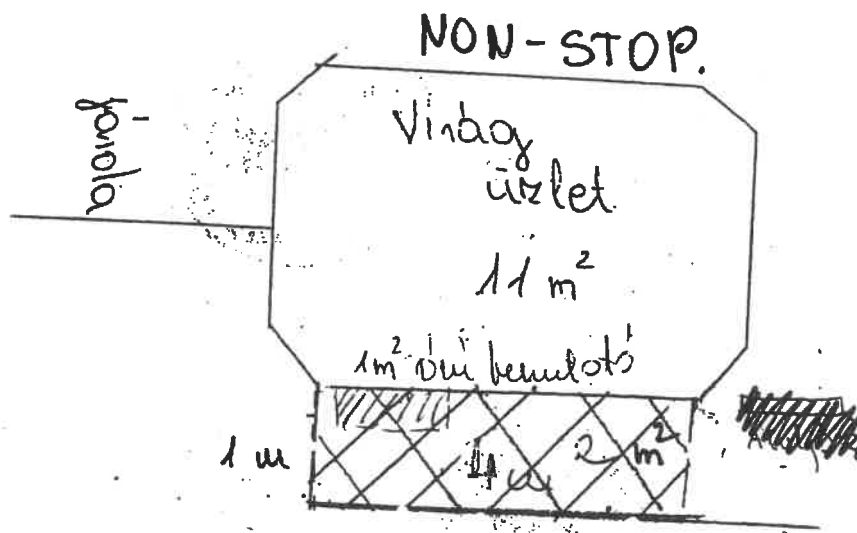 NON-STOP.
járda
Virág
üzlet
11 m²
1m² bemutató
1 m
4 m
2 m²